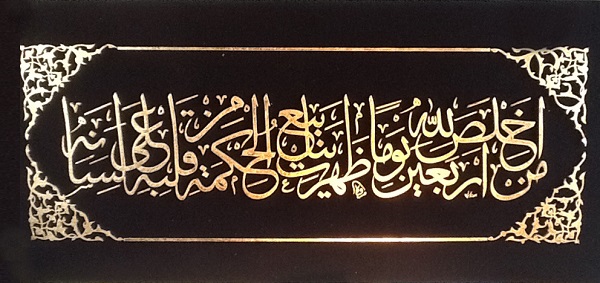 من اخلص لله اربعين يوما ظهرت ينابيع الحكمة من قلبه على لسانه